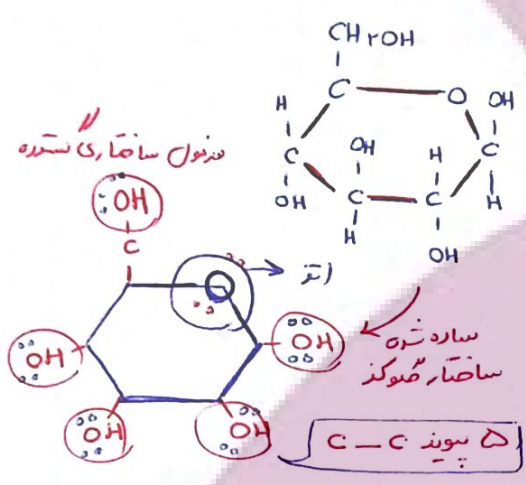 CH۲OH
H
C
O
OH
H
C
OH
H
C
OH
C
C
H
H
OH
فرمول ساختاری گسترده
OH
C
O
اتر
OH
OH
OH
OH
ساده شده
ساختار گلوکز
۵ پیوند C – C